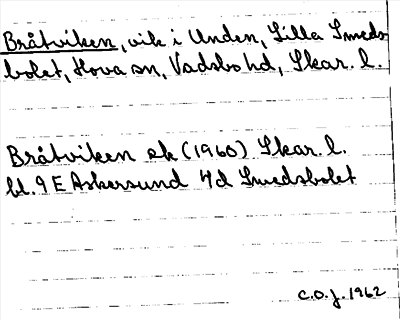 Bråtviken, vik i Unden, Lilla Smeds-
bolet, Hova sn, Vadsbo hd, Skar. l.
Bråtviken ek (1960) Skar. l.
bl. 9 E Askersund 7d Smedsbolet
C.O.J. 1962